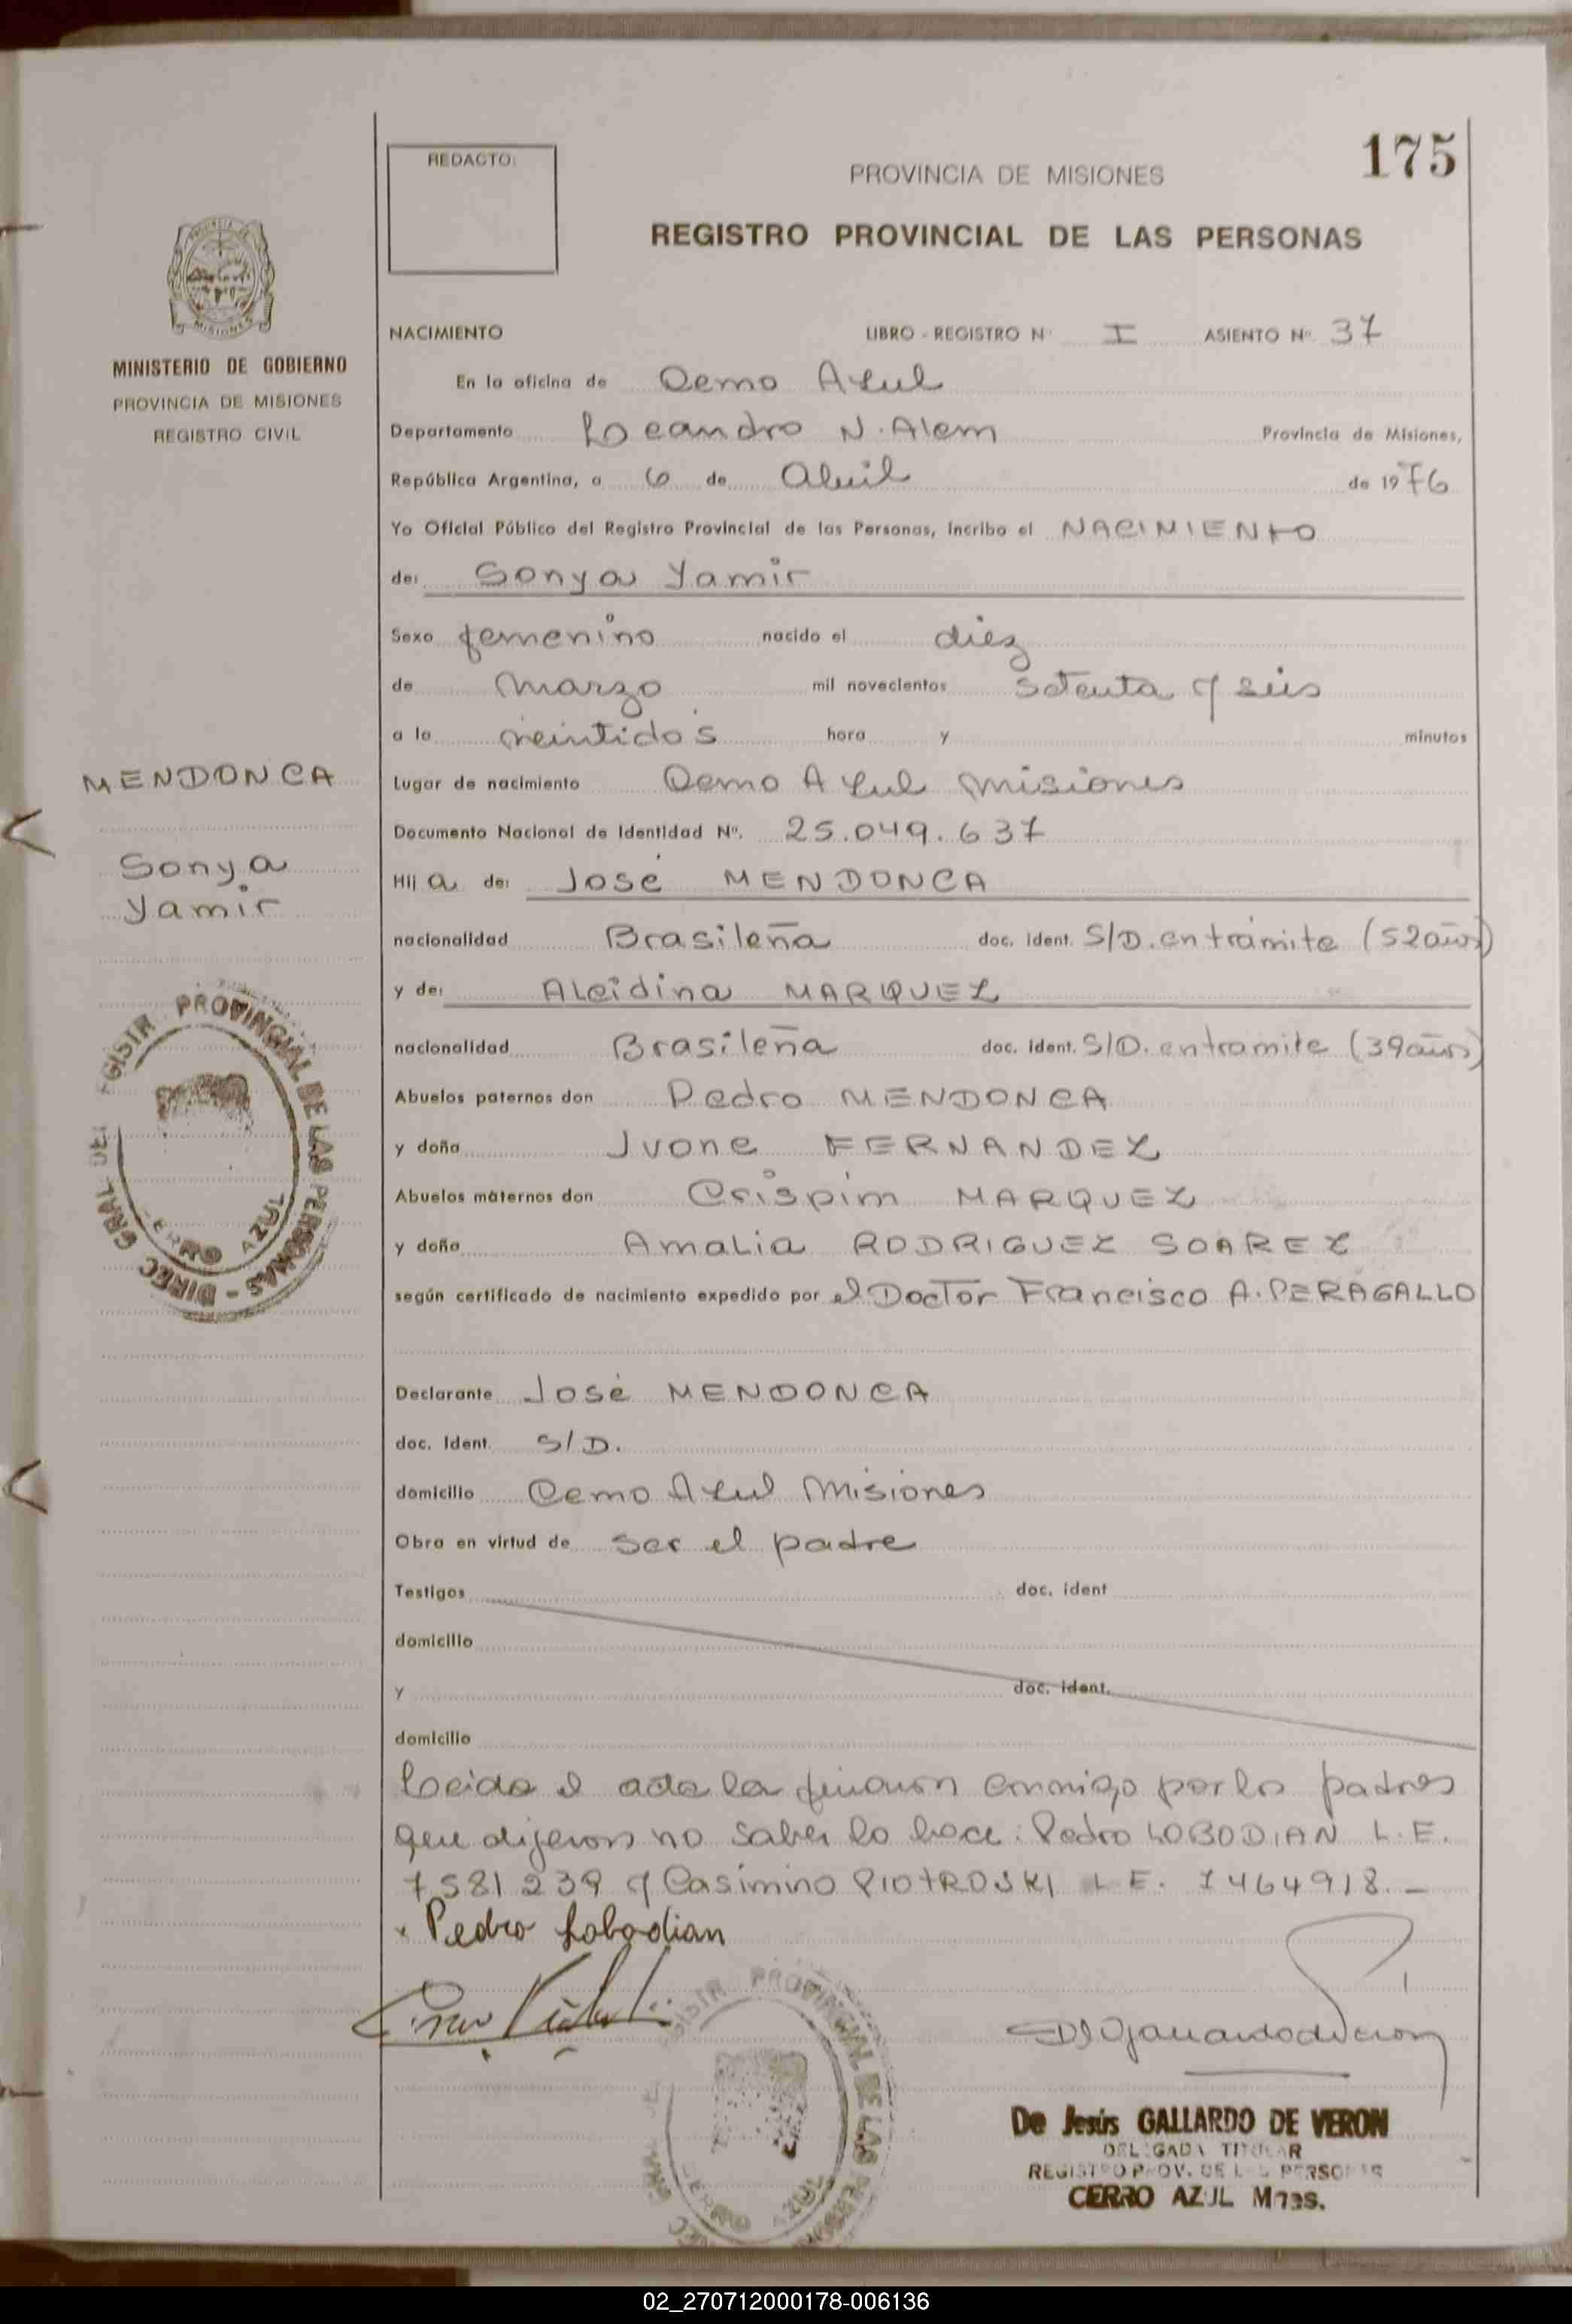 175
REDACTO:
PROVINCIA DE MISIONES
REGISTRO PROVINCIAL DE LAS PERSONAS
MINISTERIO DE GOBIERNO
PROVINCIA DE MISIONES
REGISTRO CIVIL
NACIMIENTO LIBRO - REGISTRO Nº I ASIENTO Nº 37
En la oficina de Cerro Azul
Departamento Leandro N. Alem Provincia de Misiones,
República Argentina, a 6 de Abril de 1976
Yo Oficial Público del Registro Provincial de las Personas, incribo el NACIMIENTO
de: Sonya Yamir
Sexo femenino nacido el diez
de marzo mil novecientos setenta y seis
a la veintidos hora y minutos
MENDONCA
Sonya
Yamir
Lugar de nacimiento Cerro Azul Misiones
Documento Nacional de Identidad Nº. 25.049.637
Hij a de: José MENDONCA
nacionalidad Brasileña doc. ident. S/D. en trámite (52 años)
y de: ALcidina MARQUEZ
nacionalidad Brasileña doc. ident. S/D. en tramite (39 años)
Abuelos paternos don Pedro MENDONCA
y doña Jvone FERNANDEZ
Abuelos maternos don Crispim MARQUEZ
y doña Amalia RODRIGUEZ SOAREZ
según certificado de nacimiento expedido por el Doctor Francisco A. PERAGALLO
Declarante José MENDONCA
doc. Ident. S/D.
domicilio Cerro Azul Misiones
Obra en virtud de ser el padre
Testigos doc. ident
domicilio
y doc. ident.
domicilio
Leida el acta la firman conmigo por los padres
que dijeron no saber lo hace: Pedro LOBODIAN L.E.
7581239 y Casimiro PIOTROSKI L E. 7464918. —
x Pedro Lobodian
DIREC GRAL DEL REGISTR PROVINCIAL DE LAS PERSONAS - CERRO AZUL
De Jesús GALLARDO DE VERON
DELEGADA TITULAR
REGISTRO PROV. DE LAS PERSONAS
CERRO AZUL Mnes.
02_270712000178-006136